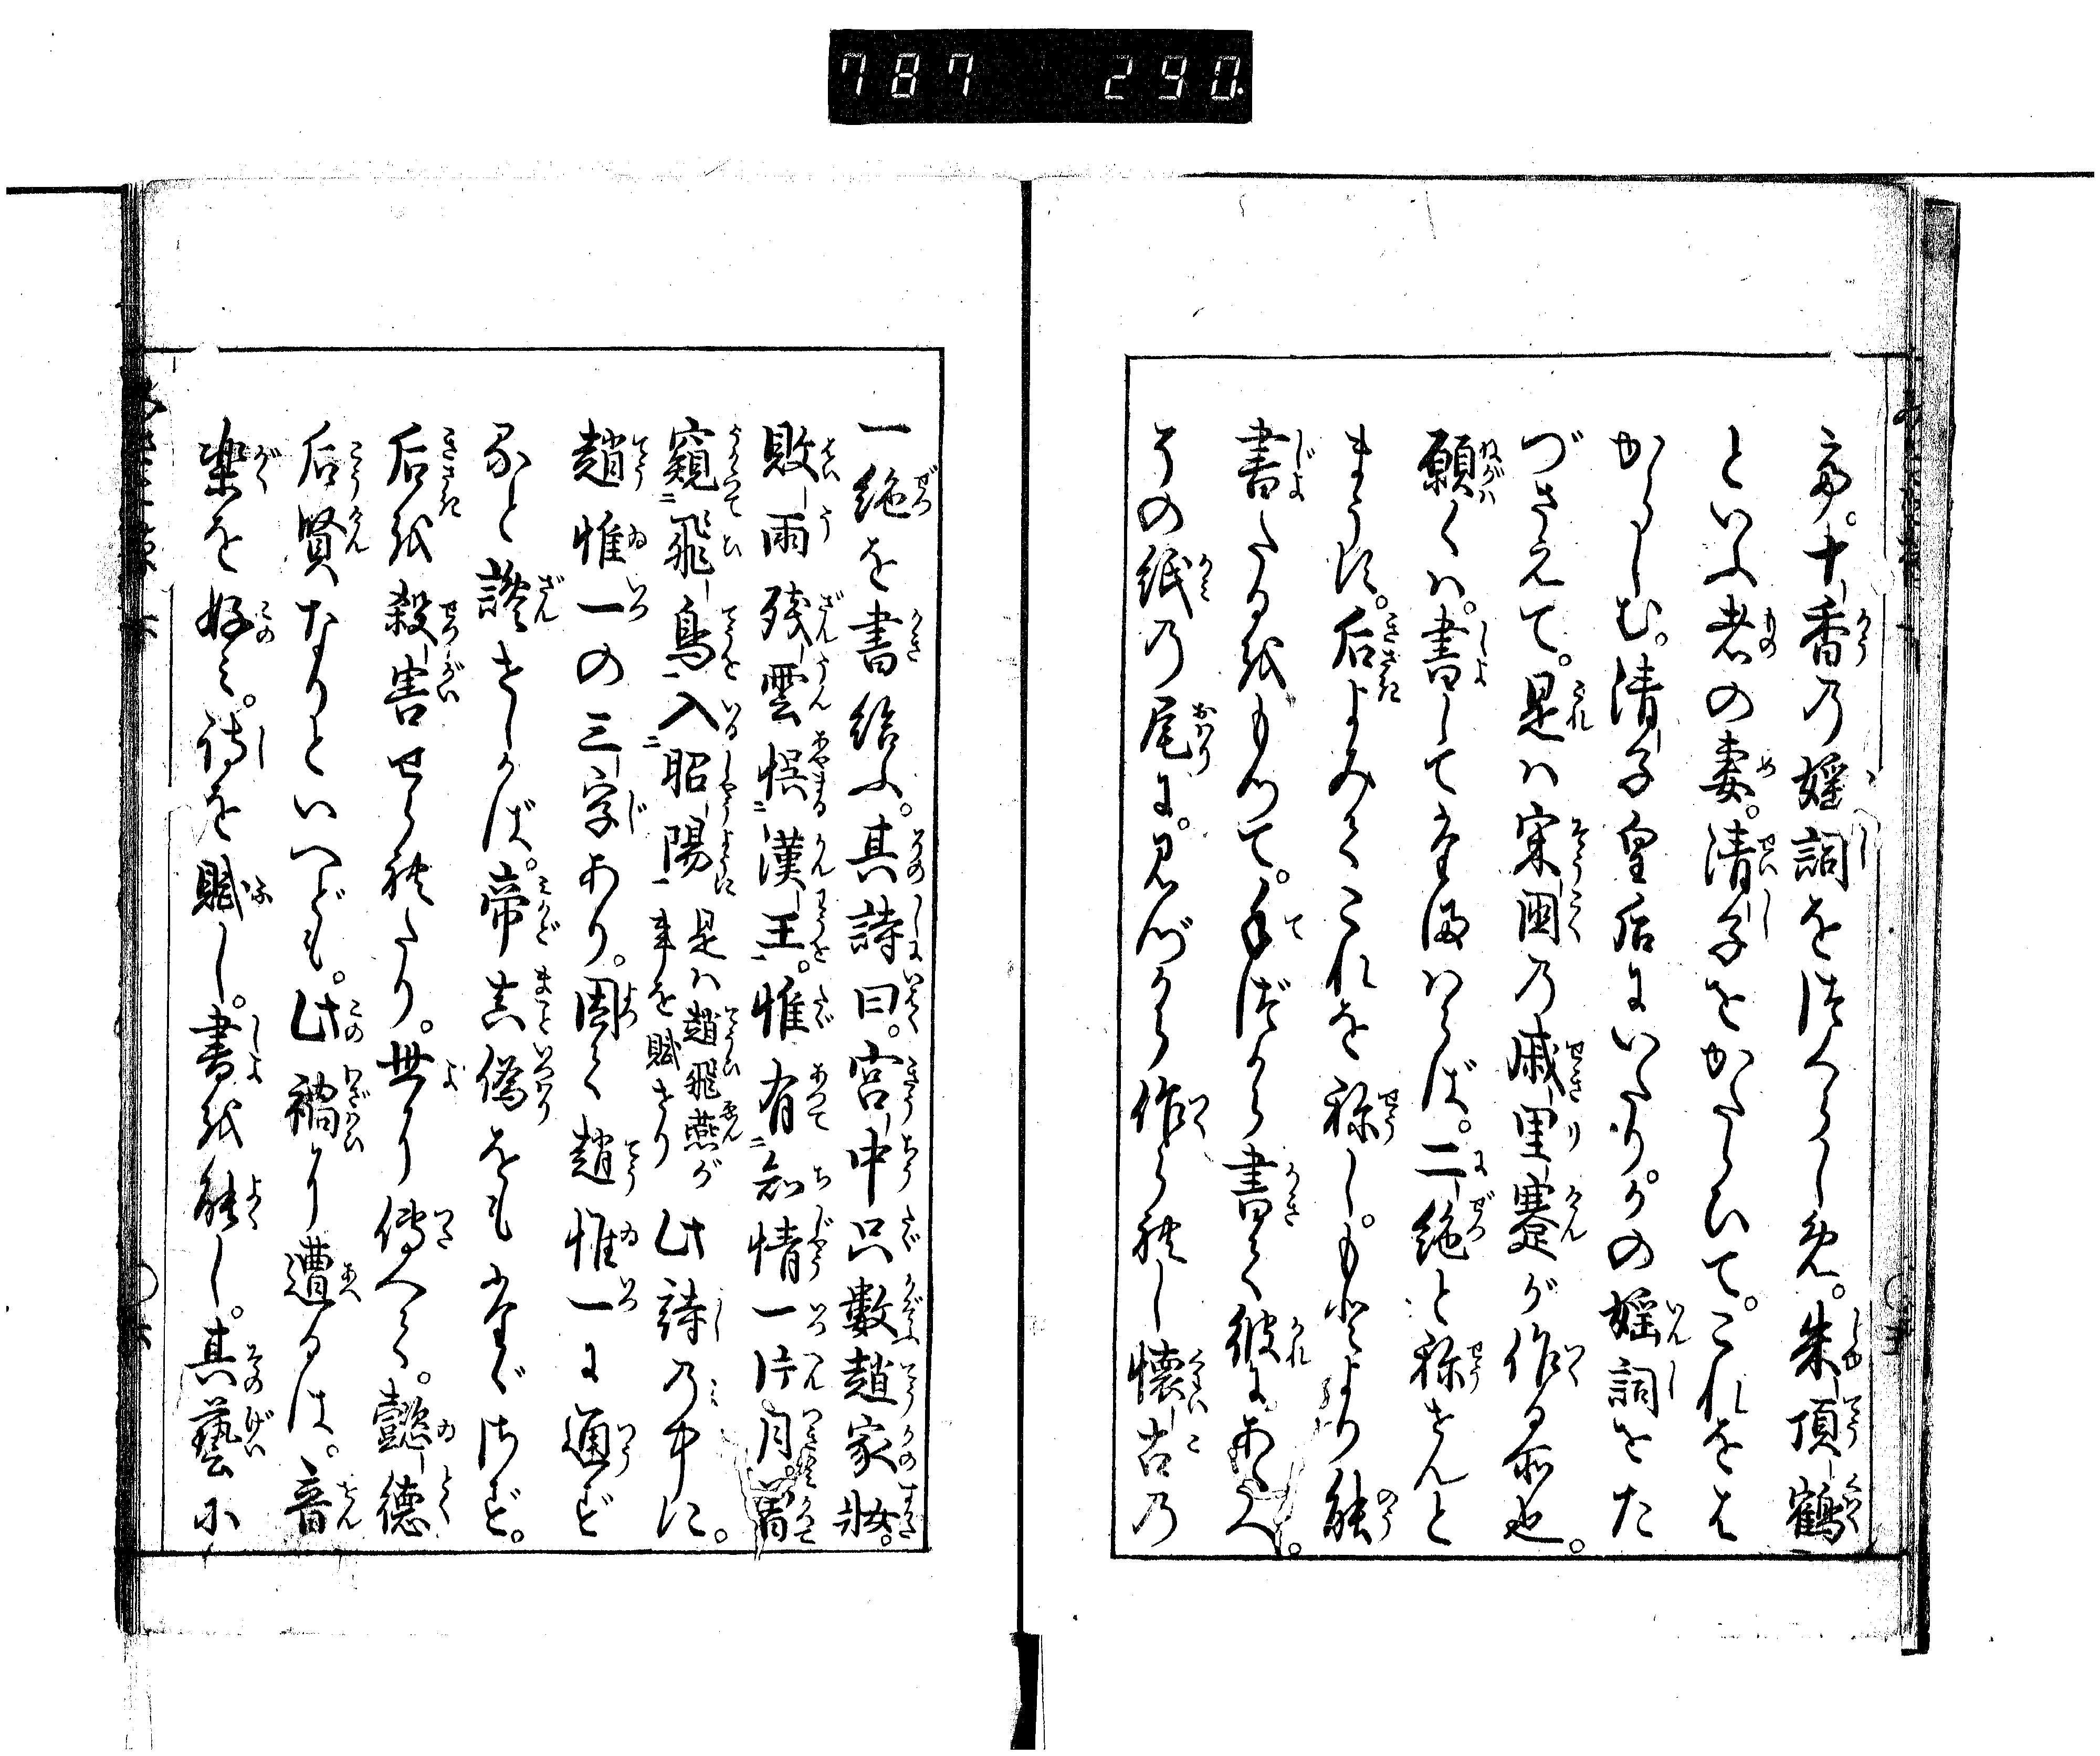 787 290
ふ。十香の婬詞をつくらしめ。朱頂鶴
といふ者の妻。清子をかたらひて。これをは
からしむ。清子皇后にいたり。かの婬詞をた
づさえて。是ハ宋国の戚里蹇が作る所也。
願くハ。書してたまハらば。二絶と称せんと
まうす。后よみてこれを称し。もとより能
書たるをもつて。手づから書て彼にあたへ。
その紙の尾に。みづから作られし懐古の
一絶を書給ふ。其詩曰。宮中只數趙家妝。
敗雨残雲悞漢王。惟有知情一片月。曽
窺飛鳥入昭陽 是ハ趙飛燕が事を賦せり 此詩の中に。
趙惟一の三字あり。因て趙惟一に通ず
ると讒せしかば。帝真偽をもたゞさず。
后を殺害せられたり。世に傳へて。懿徳
后賢なりといへども。此禍に遭るは。音
楽を好み。詩を賦し。書を能し。其藝に